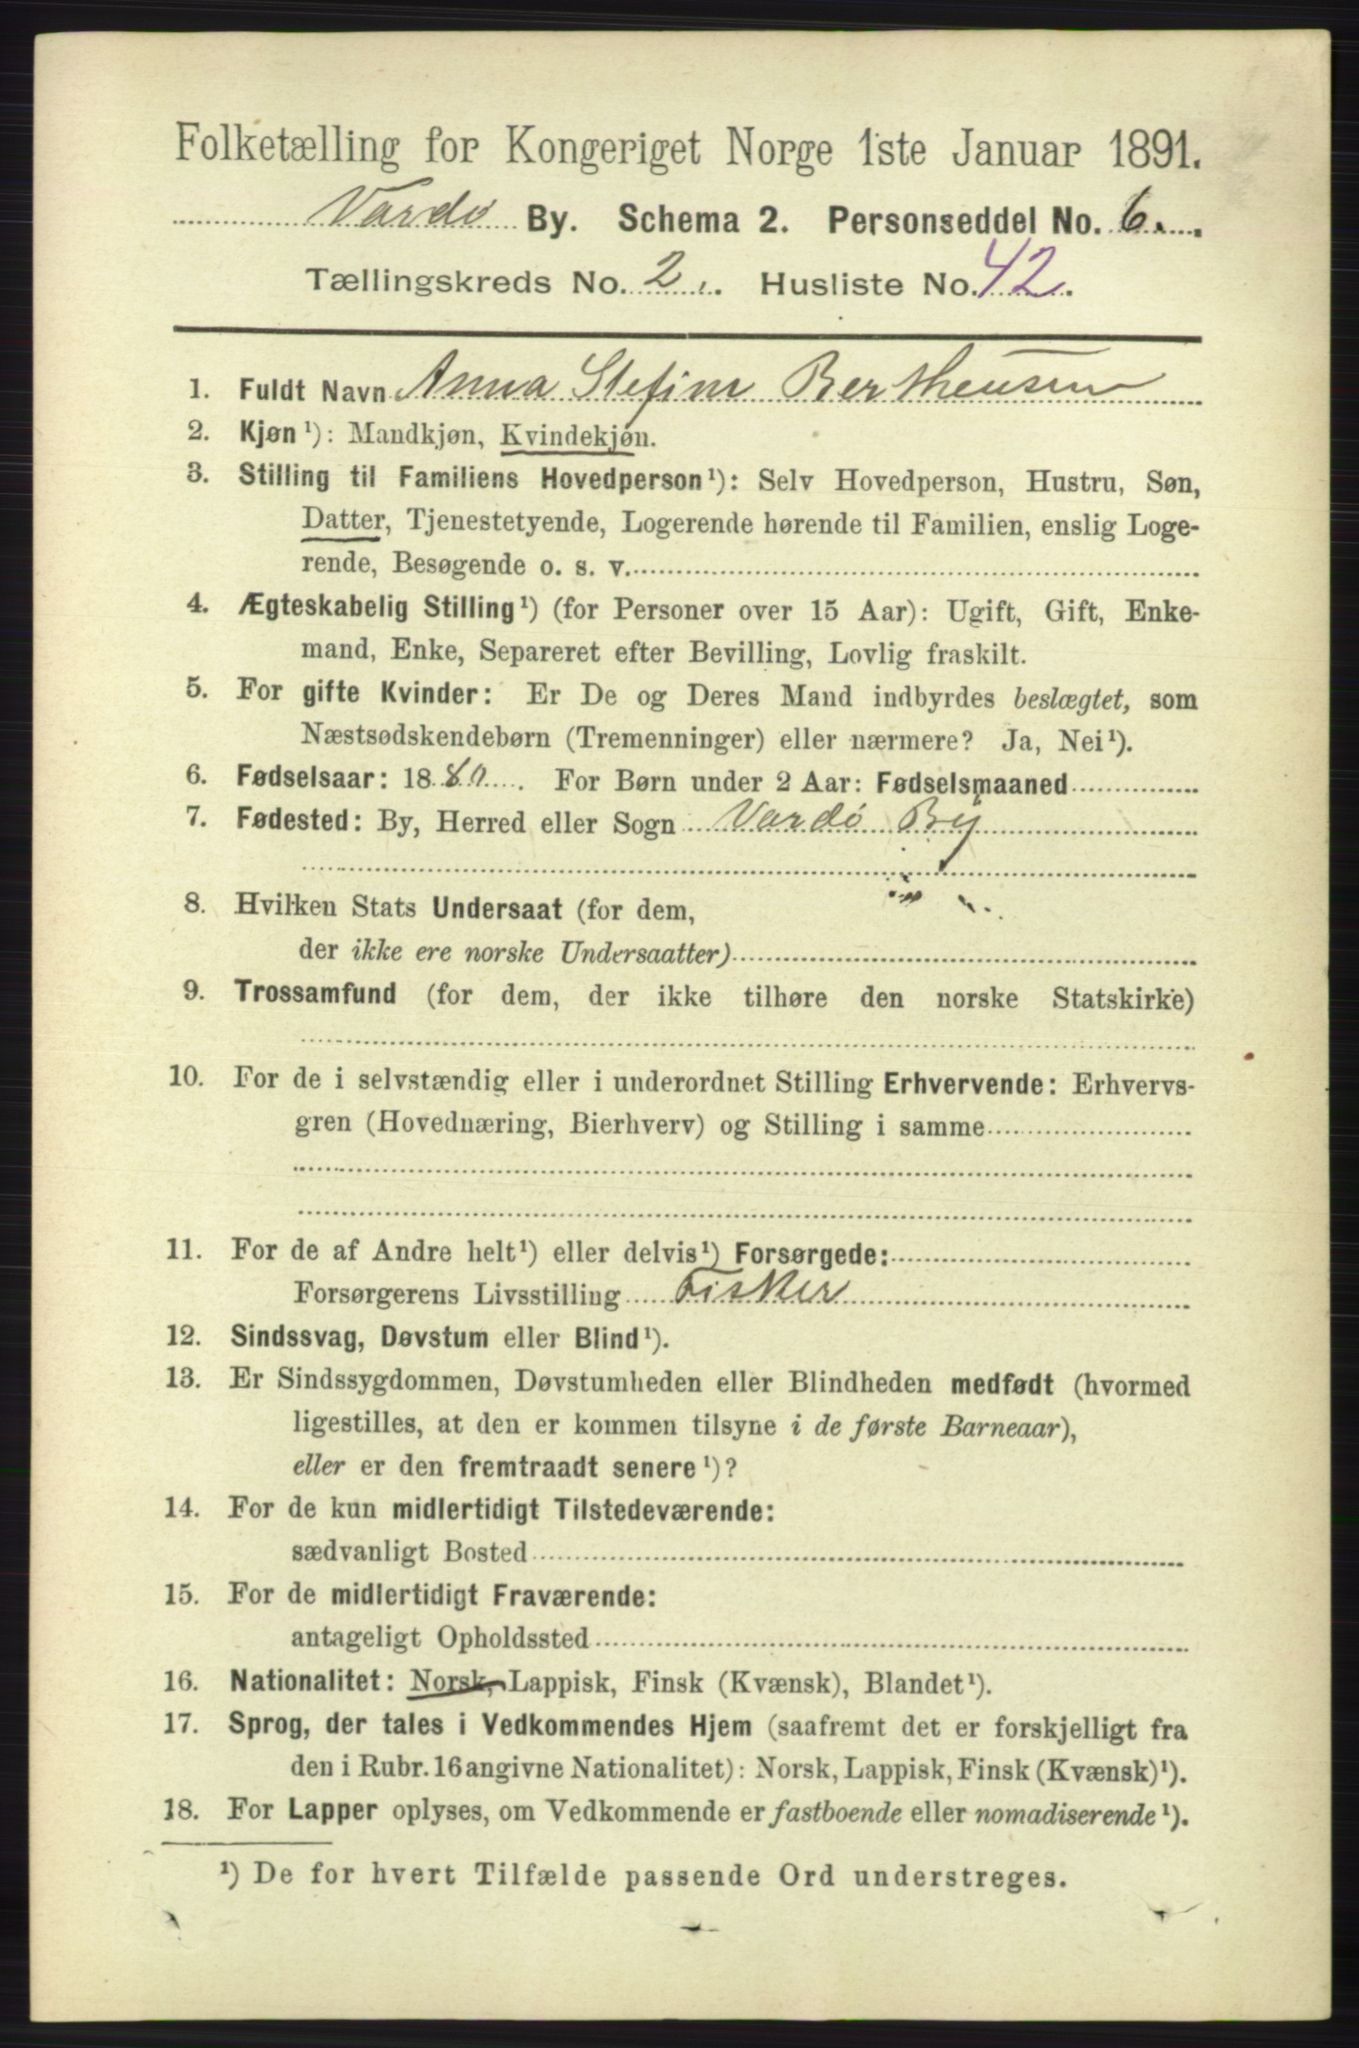 Folketælling for Kongeriget Norge 1ste Januar 1891.
Vardø By. Schema 2. Personseddel No. 6.
Tællingskreds No. 2. Husliste No. 42.
1. Fuldt Navn Anna Stefine Bertheusen
2. Kjøn¹): Mandkjøn, Kvindekjøn.
3. Stilling til Familiens Hovedperson¹): Selv Hovedperson, Hustru, Søn,
Datter, Tjenestetyende, Logerende hørende til Familien, enslig Loge-
rende, Besøgende o. s. v.
4. Ægteskabelig Stilling¹) (for Personer over 15 Aar): Ugift, Gift, Enke-
mand, Enke, Separeret efter Bevilling, Lovlig fraskilt.
5. For gifte Kvinder: Er De og Deres Mand indbyrdes beslægtet, som
Næstsødskendebørn (Tremenninger) eller nærmere? Ja, Nei¹).
6. Fødselsaar: 1880. For Børn under 2 Aar: Fødselsmaaned
7. Fødested: By, Herred eller Sogn Vardø By
8. Hvilken Stats Undersaat (for dem,
der ikke ere norske Undersaatter)
9. Trossamfund (for dem, der ikke tilhøre den norske Statskirke)
10. For de i selvstændig eller i underordnet Stilling Erhvervende: Erhvervs-
gren (Hovednæring, Bierhverv) og Stilling i samme
11. For de af Andre helt¹) eller delvis¹) Forsørgede:
Forsørgerens Livsstilling Fisker
12. Sindssvag, Døvstum eller Blind¹).
13. Er Sindssygdommen, Døvstumheden eller Blindheden medfødt (hvormed
ligestilles, at den er kommen tilsyne i de første Barneaar),
eller er den fremtraadt senere¹)?
14. For de kun midlertidigt Tilstedeværende:
sædvanligt Bosted
15. For de midlertidigt Fraværende:
antageligt Opholdssted
16. Nationalitet: Norsk, Lappisk, Finsk (Kvænsk), Blandet¹).
17. Sprog, der tales i Vedkommendes Hjem (saafremt det er forskjelligt fra
den i Rubr. 16 angivne Nationalitet): Norsk, Lappisk, Finsk (Kvænsk)¹).
18. For Lapper oplyses, om Vedkommende er fastboende eller nomadiserende¹).
¹) De for hvert Tilfælde passende Ord understreges.